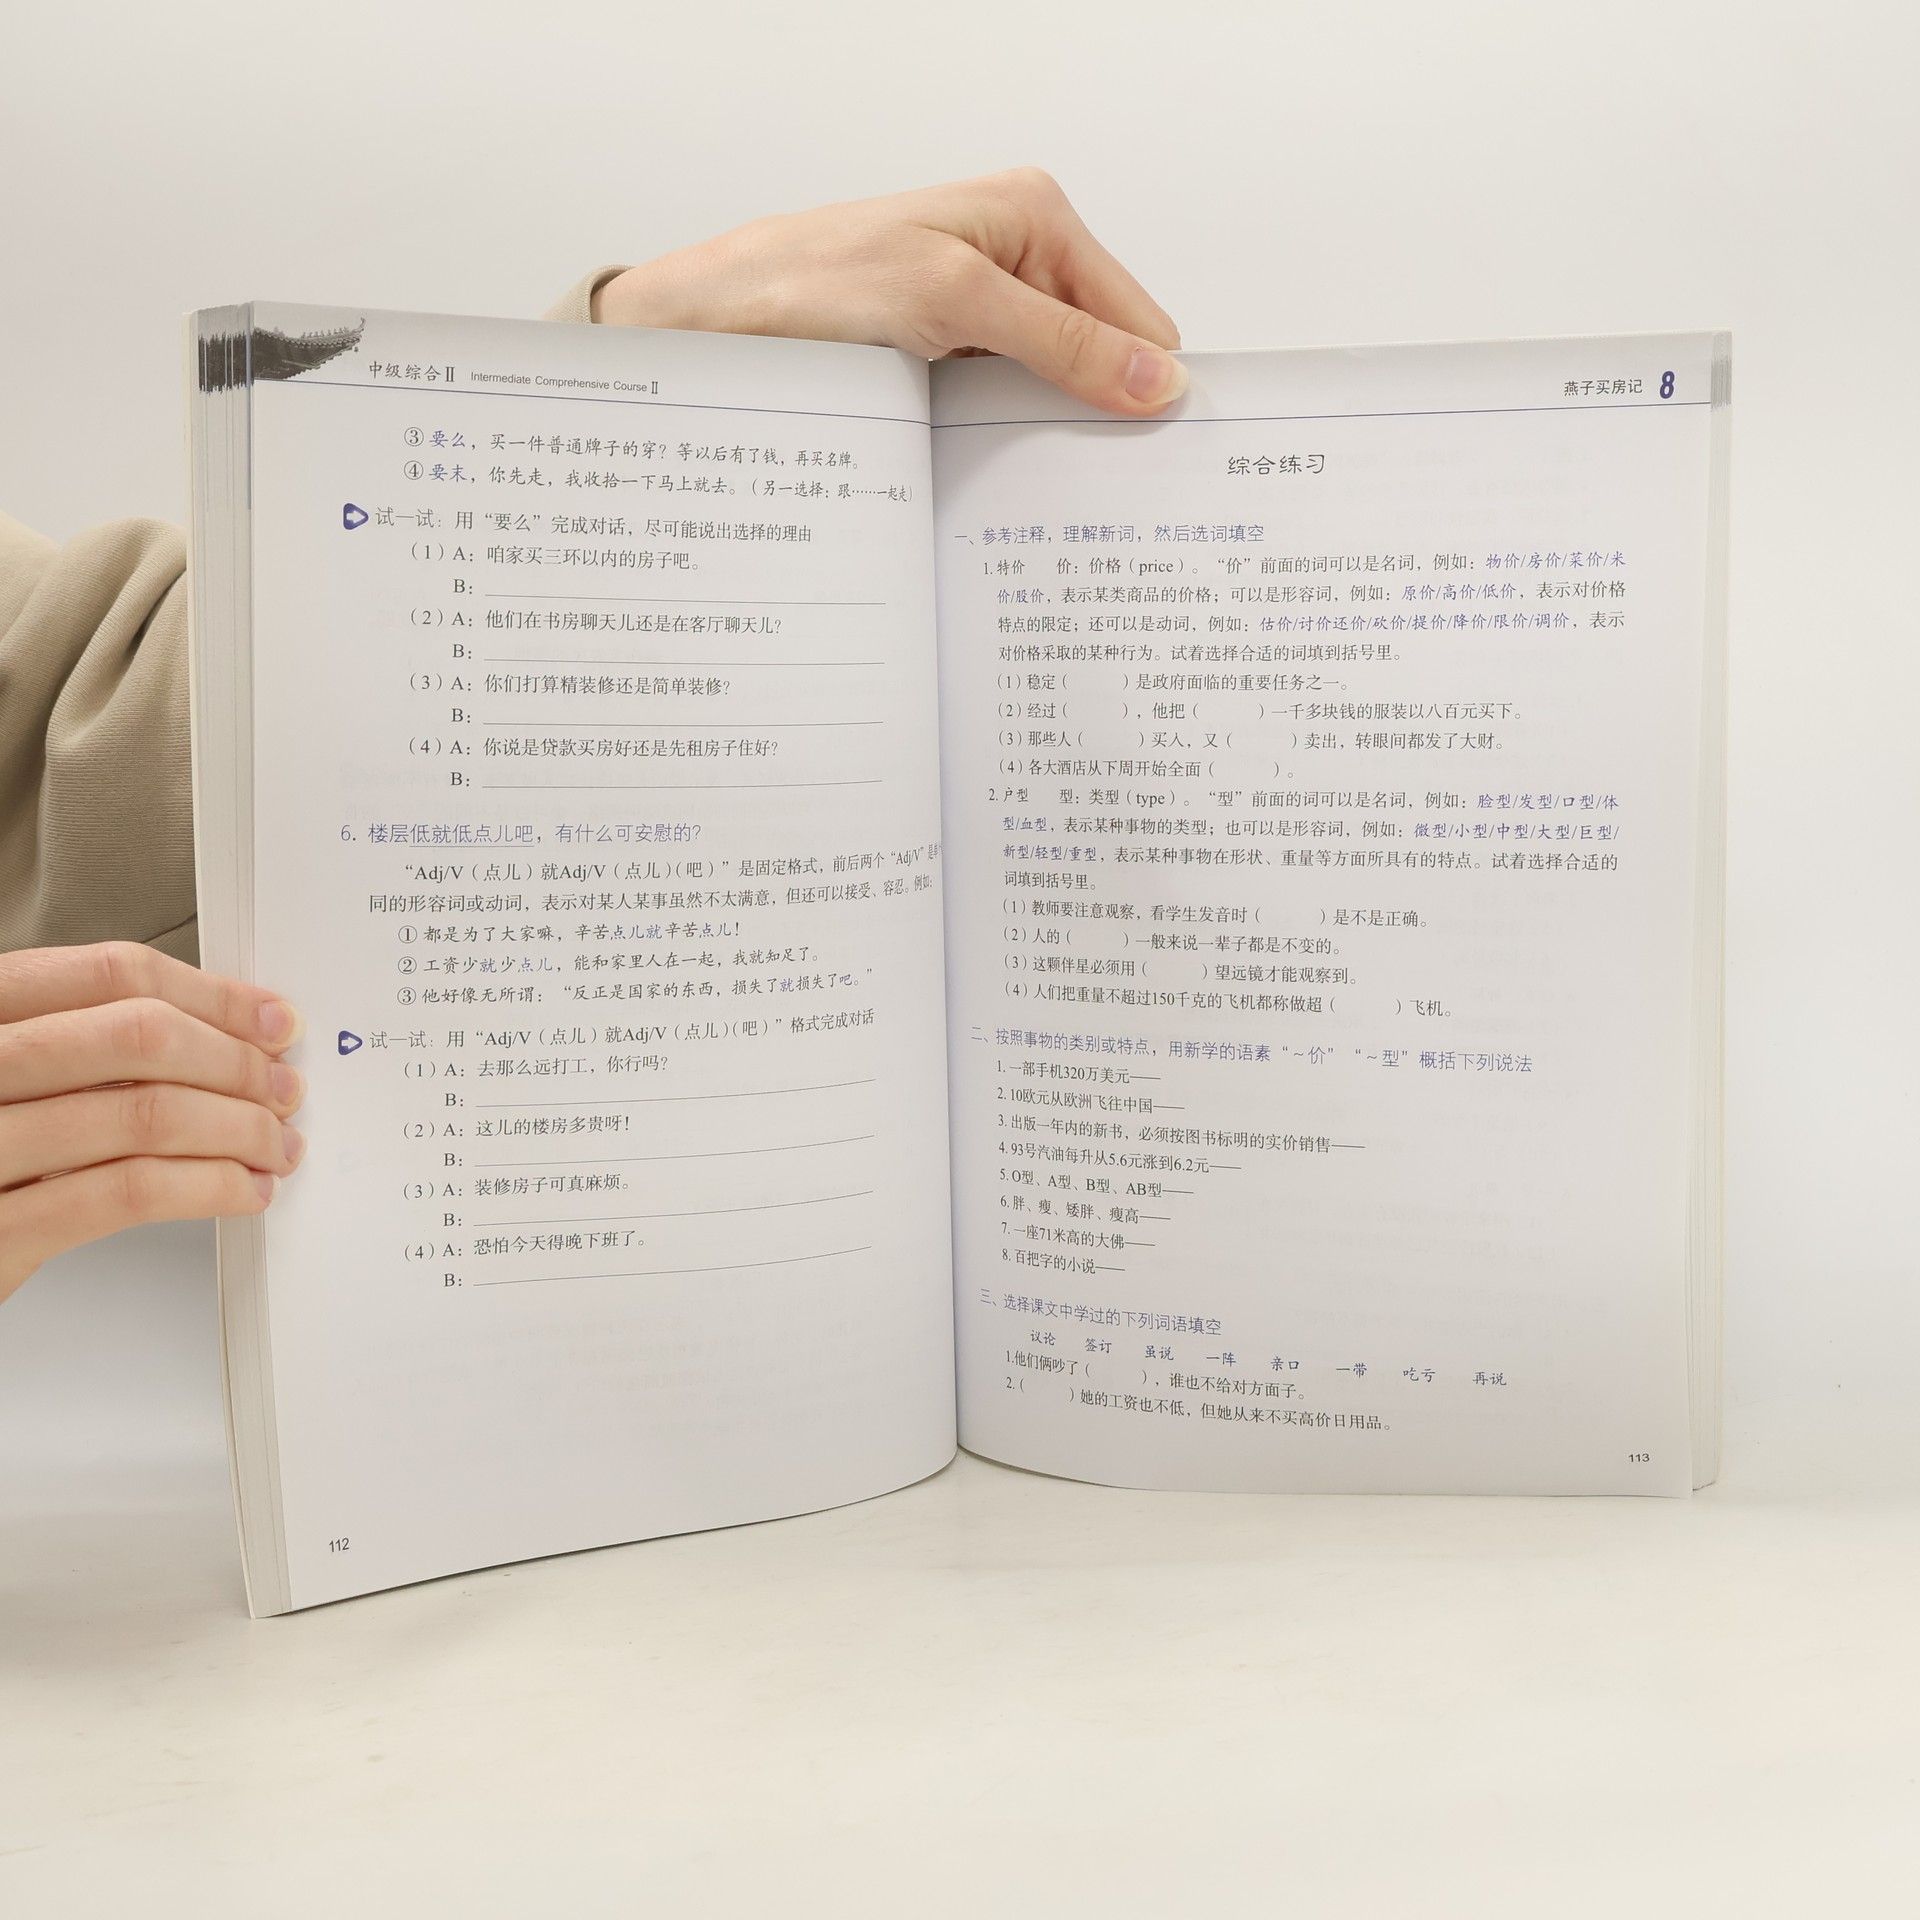 中级综合Ⅱ Intermediate Comprehensive Course Ⅱ
③ 要么，买一件普通牌子的穿？等以后有了钱，再买名牌。
④ 要末，你先走，我收拾一下马上就去。（另一选择：跟……一起走）
试一试：用“要么”完成对话，尽可能说出选择的理由
（1）A：咱家买三环以内的房子吧。
B：
（2）A：他们在书房聊天儿还是在客厅聊天儿？
B：
（3）A：你们打算精装修还是简单装修？
B：
（4）A：你说是贷款买房好还是先租房子住好？
B：
6. 楼层低就低点儿吧，有什么可安慰的？
“Adj/V（点儿）就Adj/V（点儿）（吧）”是固定格式，前后两个“Adj/V”是
同的形容词或动词，表示对某人某事虽然不太满意，但还可以接受、容忍。例如：
① 都是为了大家嘛，辛苦点儿就辛苦点儿！
② 工资少就少点儿，能和家里人在一起，我就知足了。
③ 他好像无所谓：“反正是国家的东西，损失了就损失了吧。”
试一试：用“Adj/V（点儿）就Adj/V（点儿）（吧）”格式完成对话
（1）A：去那么远打工，你行吗？
B：
（2）A：这儿的楼房多贵呀！
B：
（3）A：装修房子可真麻烦。
B：
（4）A：恐怕今天得晚下班了。
B：
112
燕子买房记 8
综合练习
一、参考注释，理解新词，然后选词填空
1. 特价 价：价格（price）。“价”前面的词可以是名词，例如：物价/房价/菜价/米
价/股价，表示某类商品的价格；可以是形容词，例如：原价/高价/低价，表示对价格
特点的限定；还可以是动词，例如：估价/讨价还价/砍价/提价/降价/限价/调价，表示
对价格采取的某种行为。试着选择合适的词填到括号里。
（1）稳定（ ）是政府面临的重要任务之一。
（2）经过（ ），他把（ ）一千多块钱的服装以八百元买下。
（3）那些人（ ）买入，又（ ）卖出，转眼间都发了大财。
（4）各大酒店从下周开始全面（ ）。
2. 户型 型：类型（type）。“型”前面的词可以是名词，例如：脸型/发型/口型/体
型/血型，表示某种事物的类型；也可以是形容词，例如：微型/小型/中型/大型/巨型/
新型/轻型/重型，表示某种事物在形状、重量等方面所具有的特点。试着选择合适的
词填到括号里。
（1）教师要注意观察，看学生发音时（ ）是不是正确。
（2）人的（ ）一般来说一辈子都是不变的。
（3）这颗伴星必须用（ ）望远镜才能观察到。
（4）人们把重量不超过150千克的飞机都称做超（ ）飞机。
二、按照事物的类别或特点，用新学的语素“～价”“～型”概括下列说法
1. 一部手机320万美元——
2. 10欧元从欧洲飞往中国——
3. 出版一年内的新书，必须按图书标明的实价销售——
4. 93号汽油每升从5.6元涨到6.2元——
5. O型、A型、B型、AB型——
6. 胖、瘦、矮胖、瘦高——
7. 一座71米高的大佛——
8. 百把字的小说——
三、选择课文中学过的下列词语填空
议论 签订 虽说 一阵 亲口 一带 吃亏 再说
1.他们俩吵了（ ），谁也不给对方面子。
2.（ ）她的工资也不低，但她从来不买高价日用品。
113